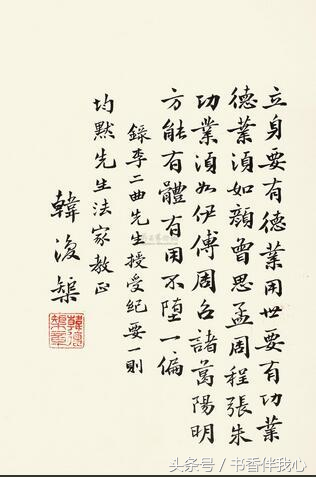 立身要有德業用世要有功業
德業湏如顏曾思孟周程張朱
功業湏如伊傅周召諸葛陽明
方能有體有用不墮一偏
錄李二曲先生授受紀要一則
均默先生法家教正
韓復榘
韓復榘章
头条号／书香伴我心